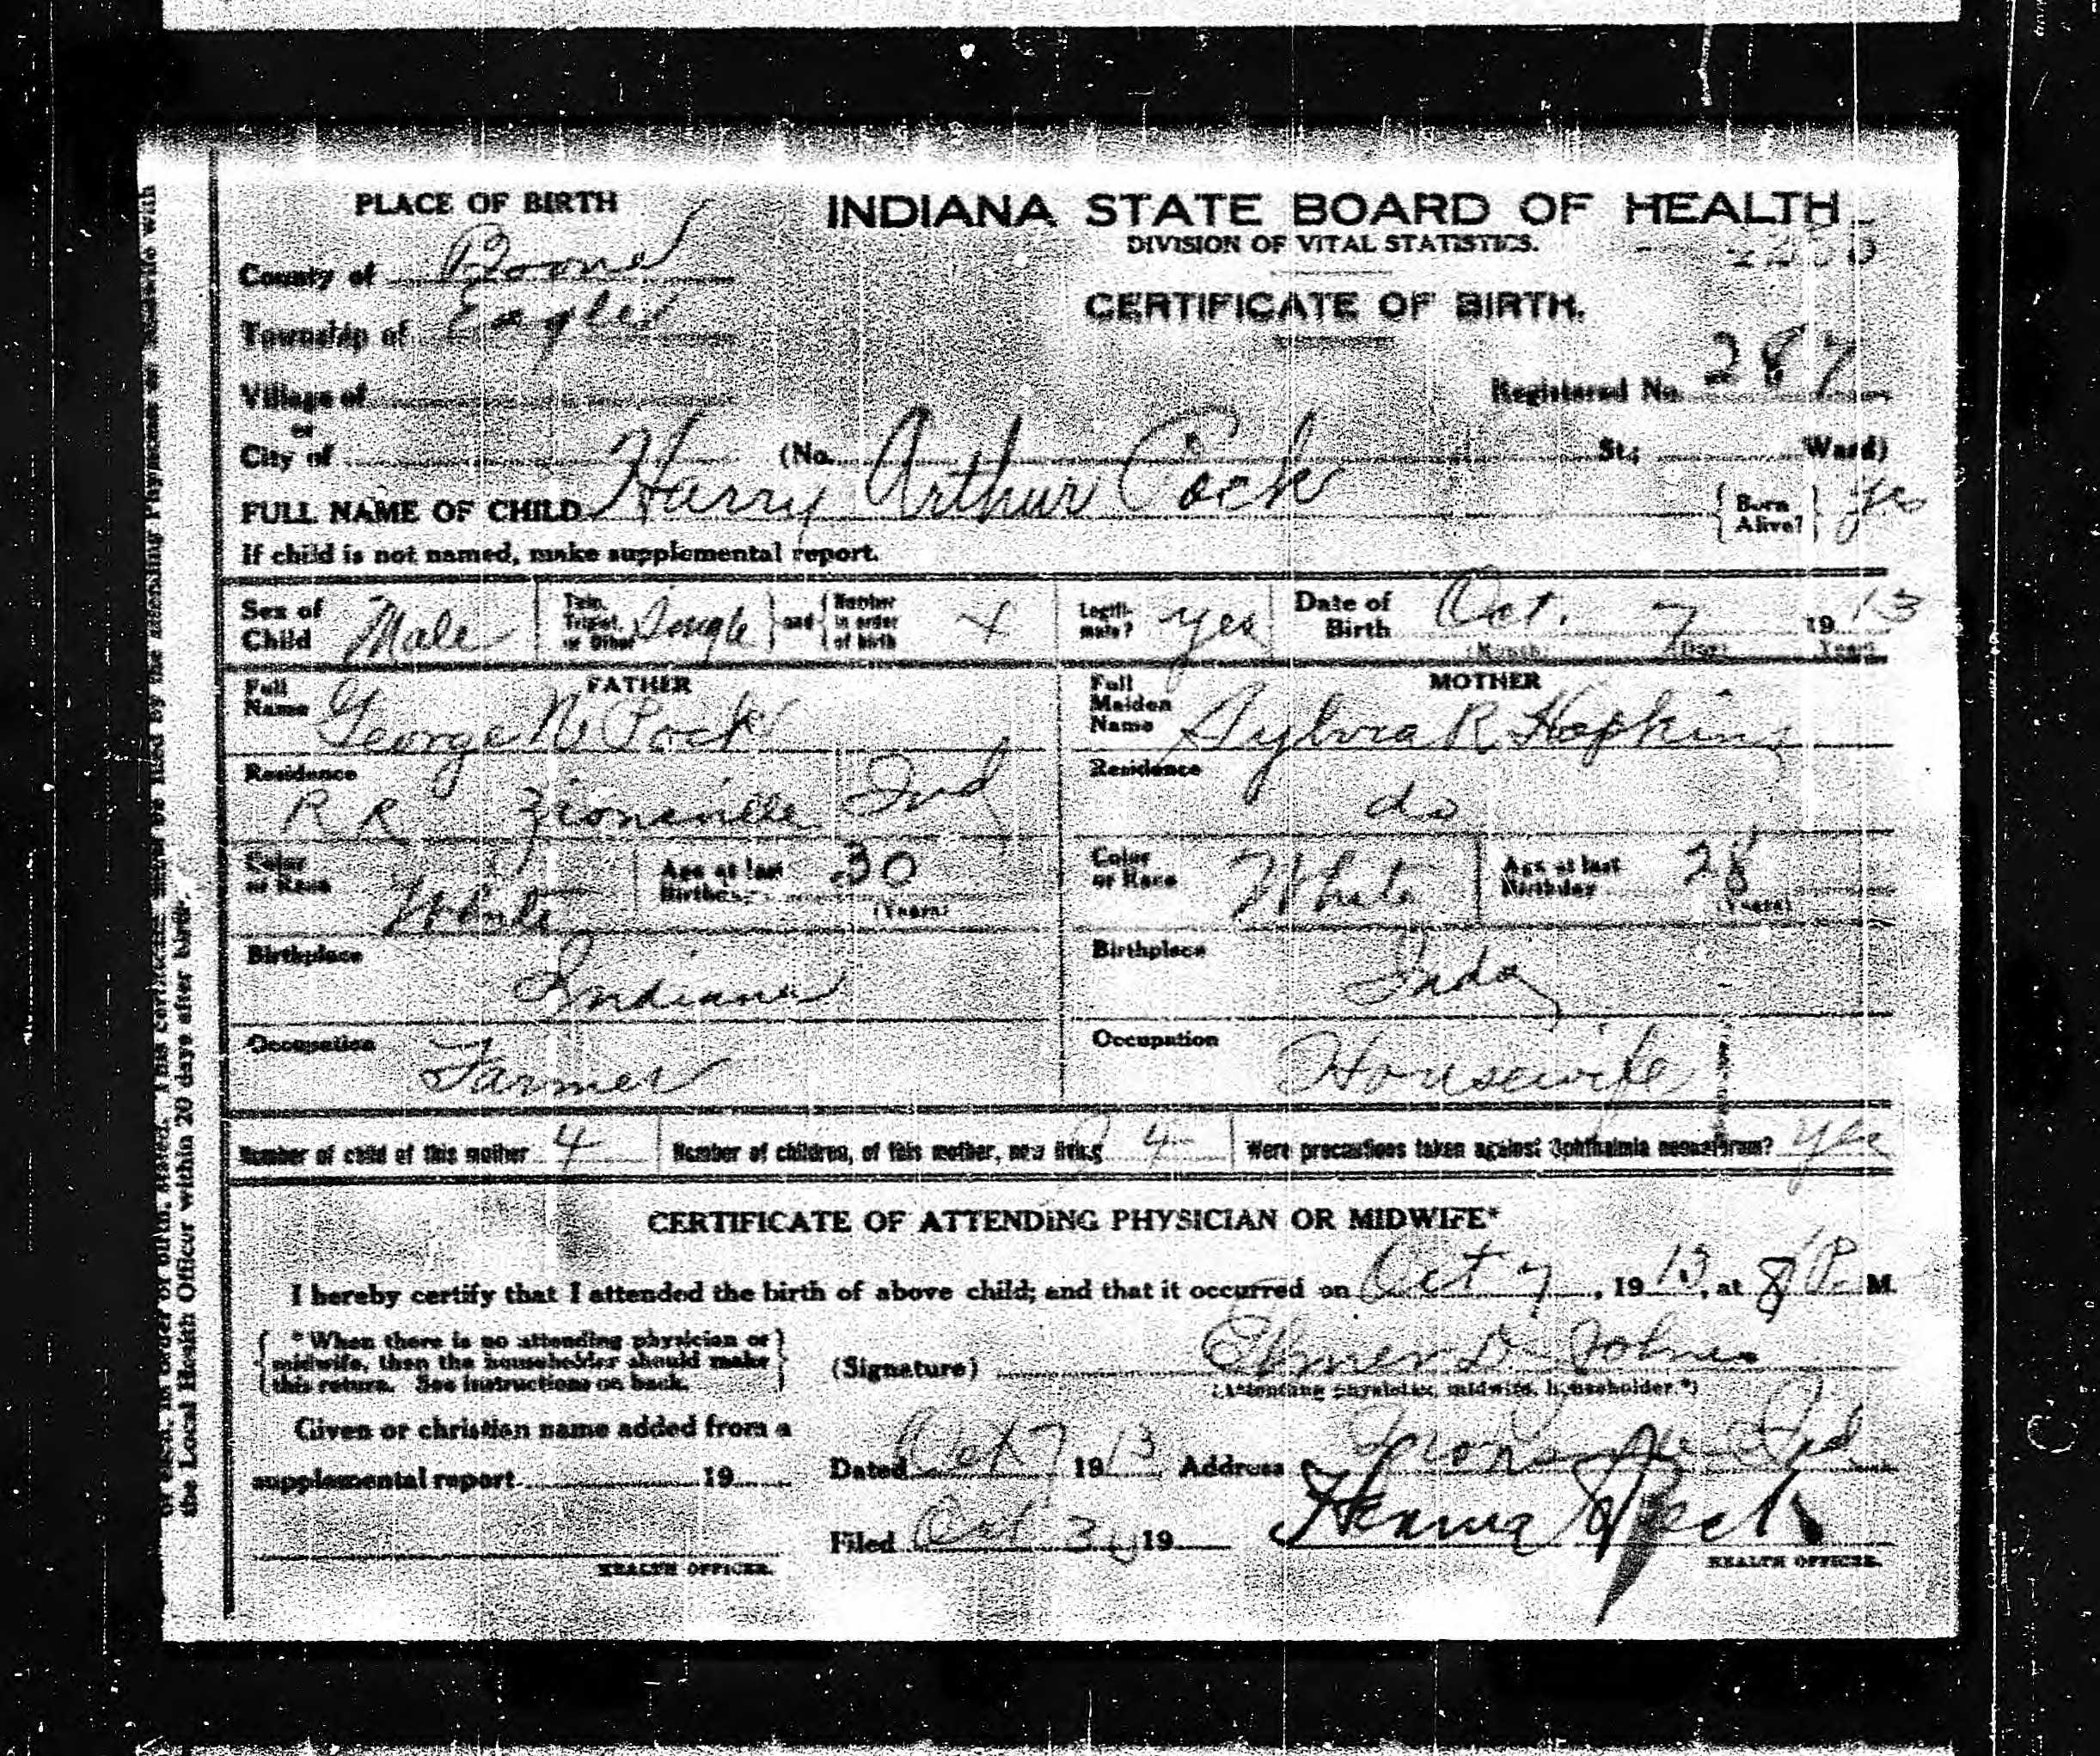 PLACE OF BIRTH
INDIANA STATE BOARD OF HEALTH
DIVISION OF VITAL STATISTICS.
County of Boone
CERTIFICATE OF BIRTH.
Township of Eagle
Registered No. 287
Village of
or
City of (No. St.; Ward)
FULL NAME OF CHILD Harry Arthur Pock { Born Alive? } yes
If child is not named, make supplemental report.
Sex of Child Male Twin, Triplet, or Other Single } and { Number in order of birth 4 Legiti- mate? yes Date of Birth Oct. 7 1913
(Month) (Day) (Year)
FATHER
MOTHER
Full Name George N Pock
Full Maiden Name Sylvia R. Hopkins
Residence R R Zionsville Ind
Residence do
Color or Race White Age at last Birthday 30 (Years)
Color or Race White Age at last Birthday 28 (Years)
Birthplace Indiana
Birthplace Inda
Occupation Farmer
Occupation Housewife
Number of child of this mother 4 Number of children, of this mother, now living 4 Were precautions taken against Ophthalmia neonatorum? yes
CERTIFICATE OF ATTENDING PHYSICIAN OR MIDWIFE*
I hereby certify that I attended the birth of above child; and that it occurred on Oct 7, 1913, at 8 P. M.
{ *When there is no attending physician or midwife, then the householder should make this return. See instructions on back. }
(Signature) Elmer D. Johns
(Attending physician, midwife, householder.*)
Given or christian name added from a
supplemental report 19
Dated Oct 7 1913 Address Zionsville Ind
Filed Oct 19
HEALTH OFFICER.
HEALTH OFFICER.
the Local Health Officer within 20 days after birth.